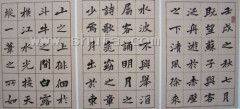 壬戌之秋七月
既望蘇子與客
泛舟遊於赤壁
之下清風徐來
水波不興舉酒
屬客誦明月之
詩歌窈窕之章
少焉月出於東
山之上徘徊於
斗牛之間白露
橫江水光接天
縱一葦之所如